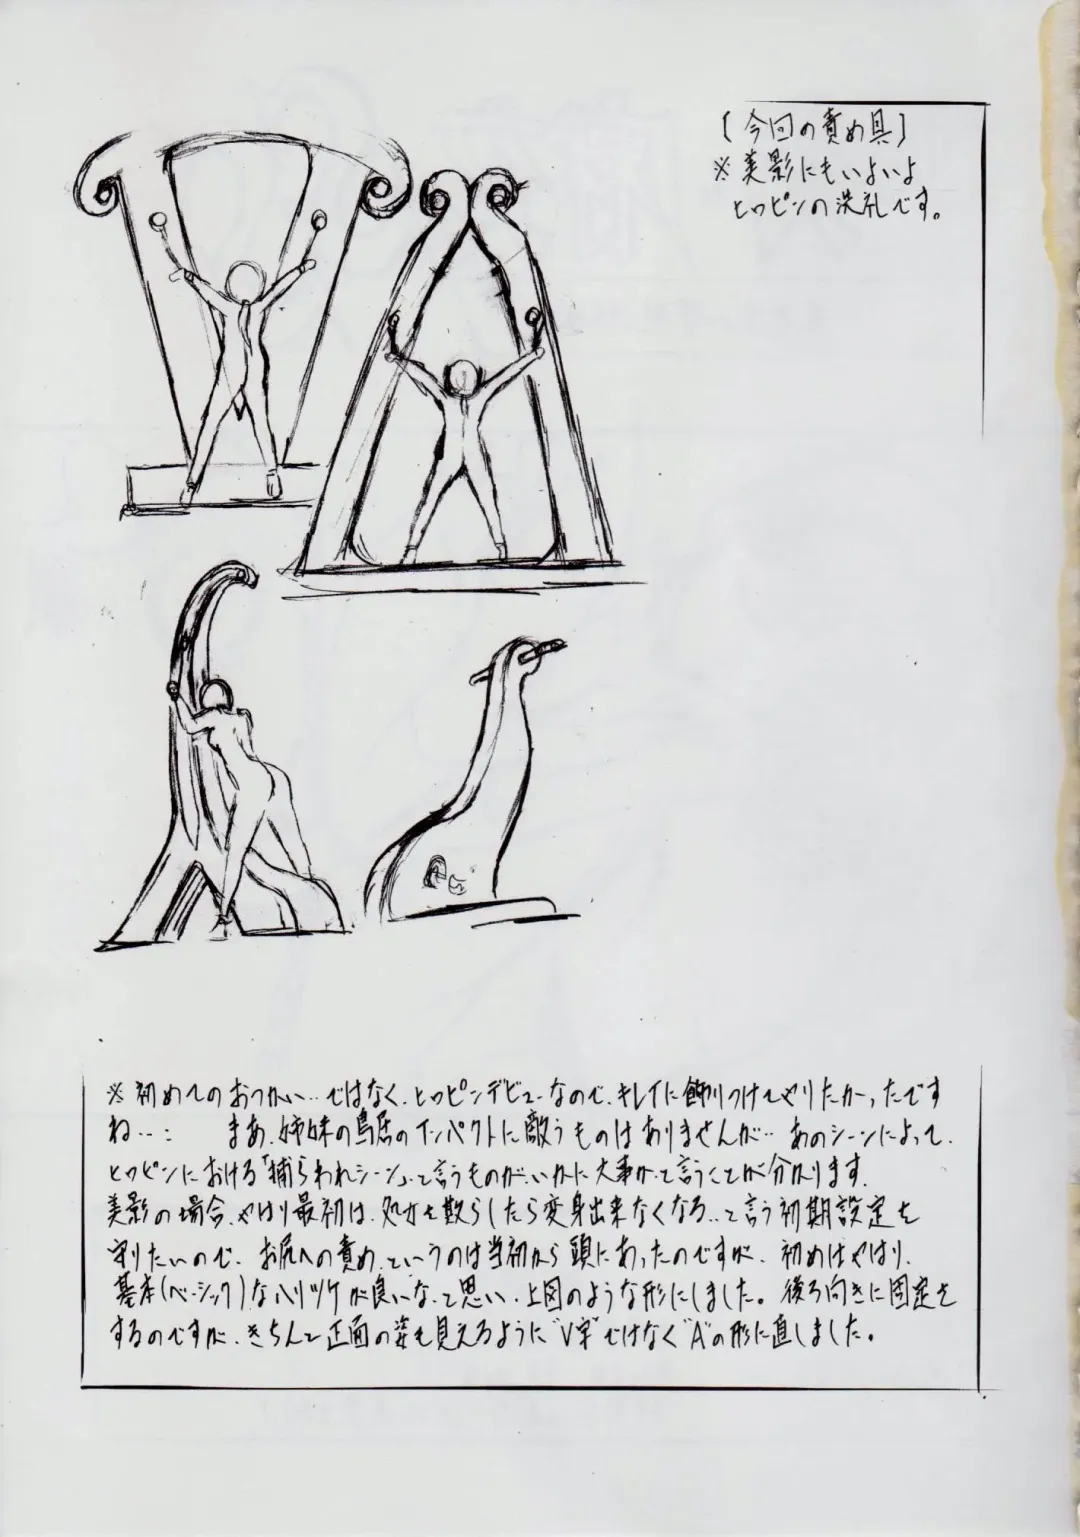 【今回の責め具】
※美影にもいよいよ
ヒロピンの洗礼です。
※初めてのおつかい‥ではなく、ヒロピンデビューなので、キレイに飾りつけてやりたかったです
ね‥: まあ、姉妹の鳥居のインパクトに敵うものはありませんが‥あのシーンによって、
ヒロピンにおける「捕らわれシーン」って言うものが、いかに大事かって言うことが分かります。
美影の場合、やはり最初は、処女を散らしたら変身出来なくなる‥と言う初期設定を
守りたいので、お尻への責め、というのは当初から頭にあったのですが、初めはやはり、
基本(ベーシック)なハリツケが良いな、と思い、上図のような形にしました。後ろ向きに固定を
するのですが、きちんと正面の姿も見えるように"V字"ではなく"A"の形に直しました。